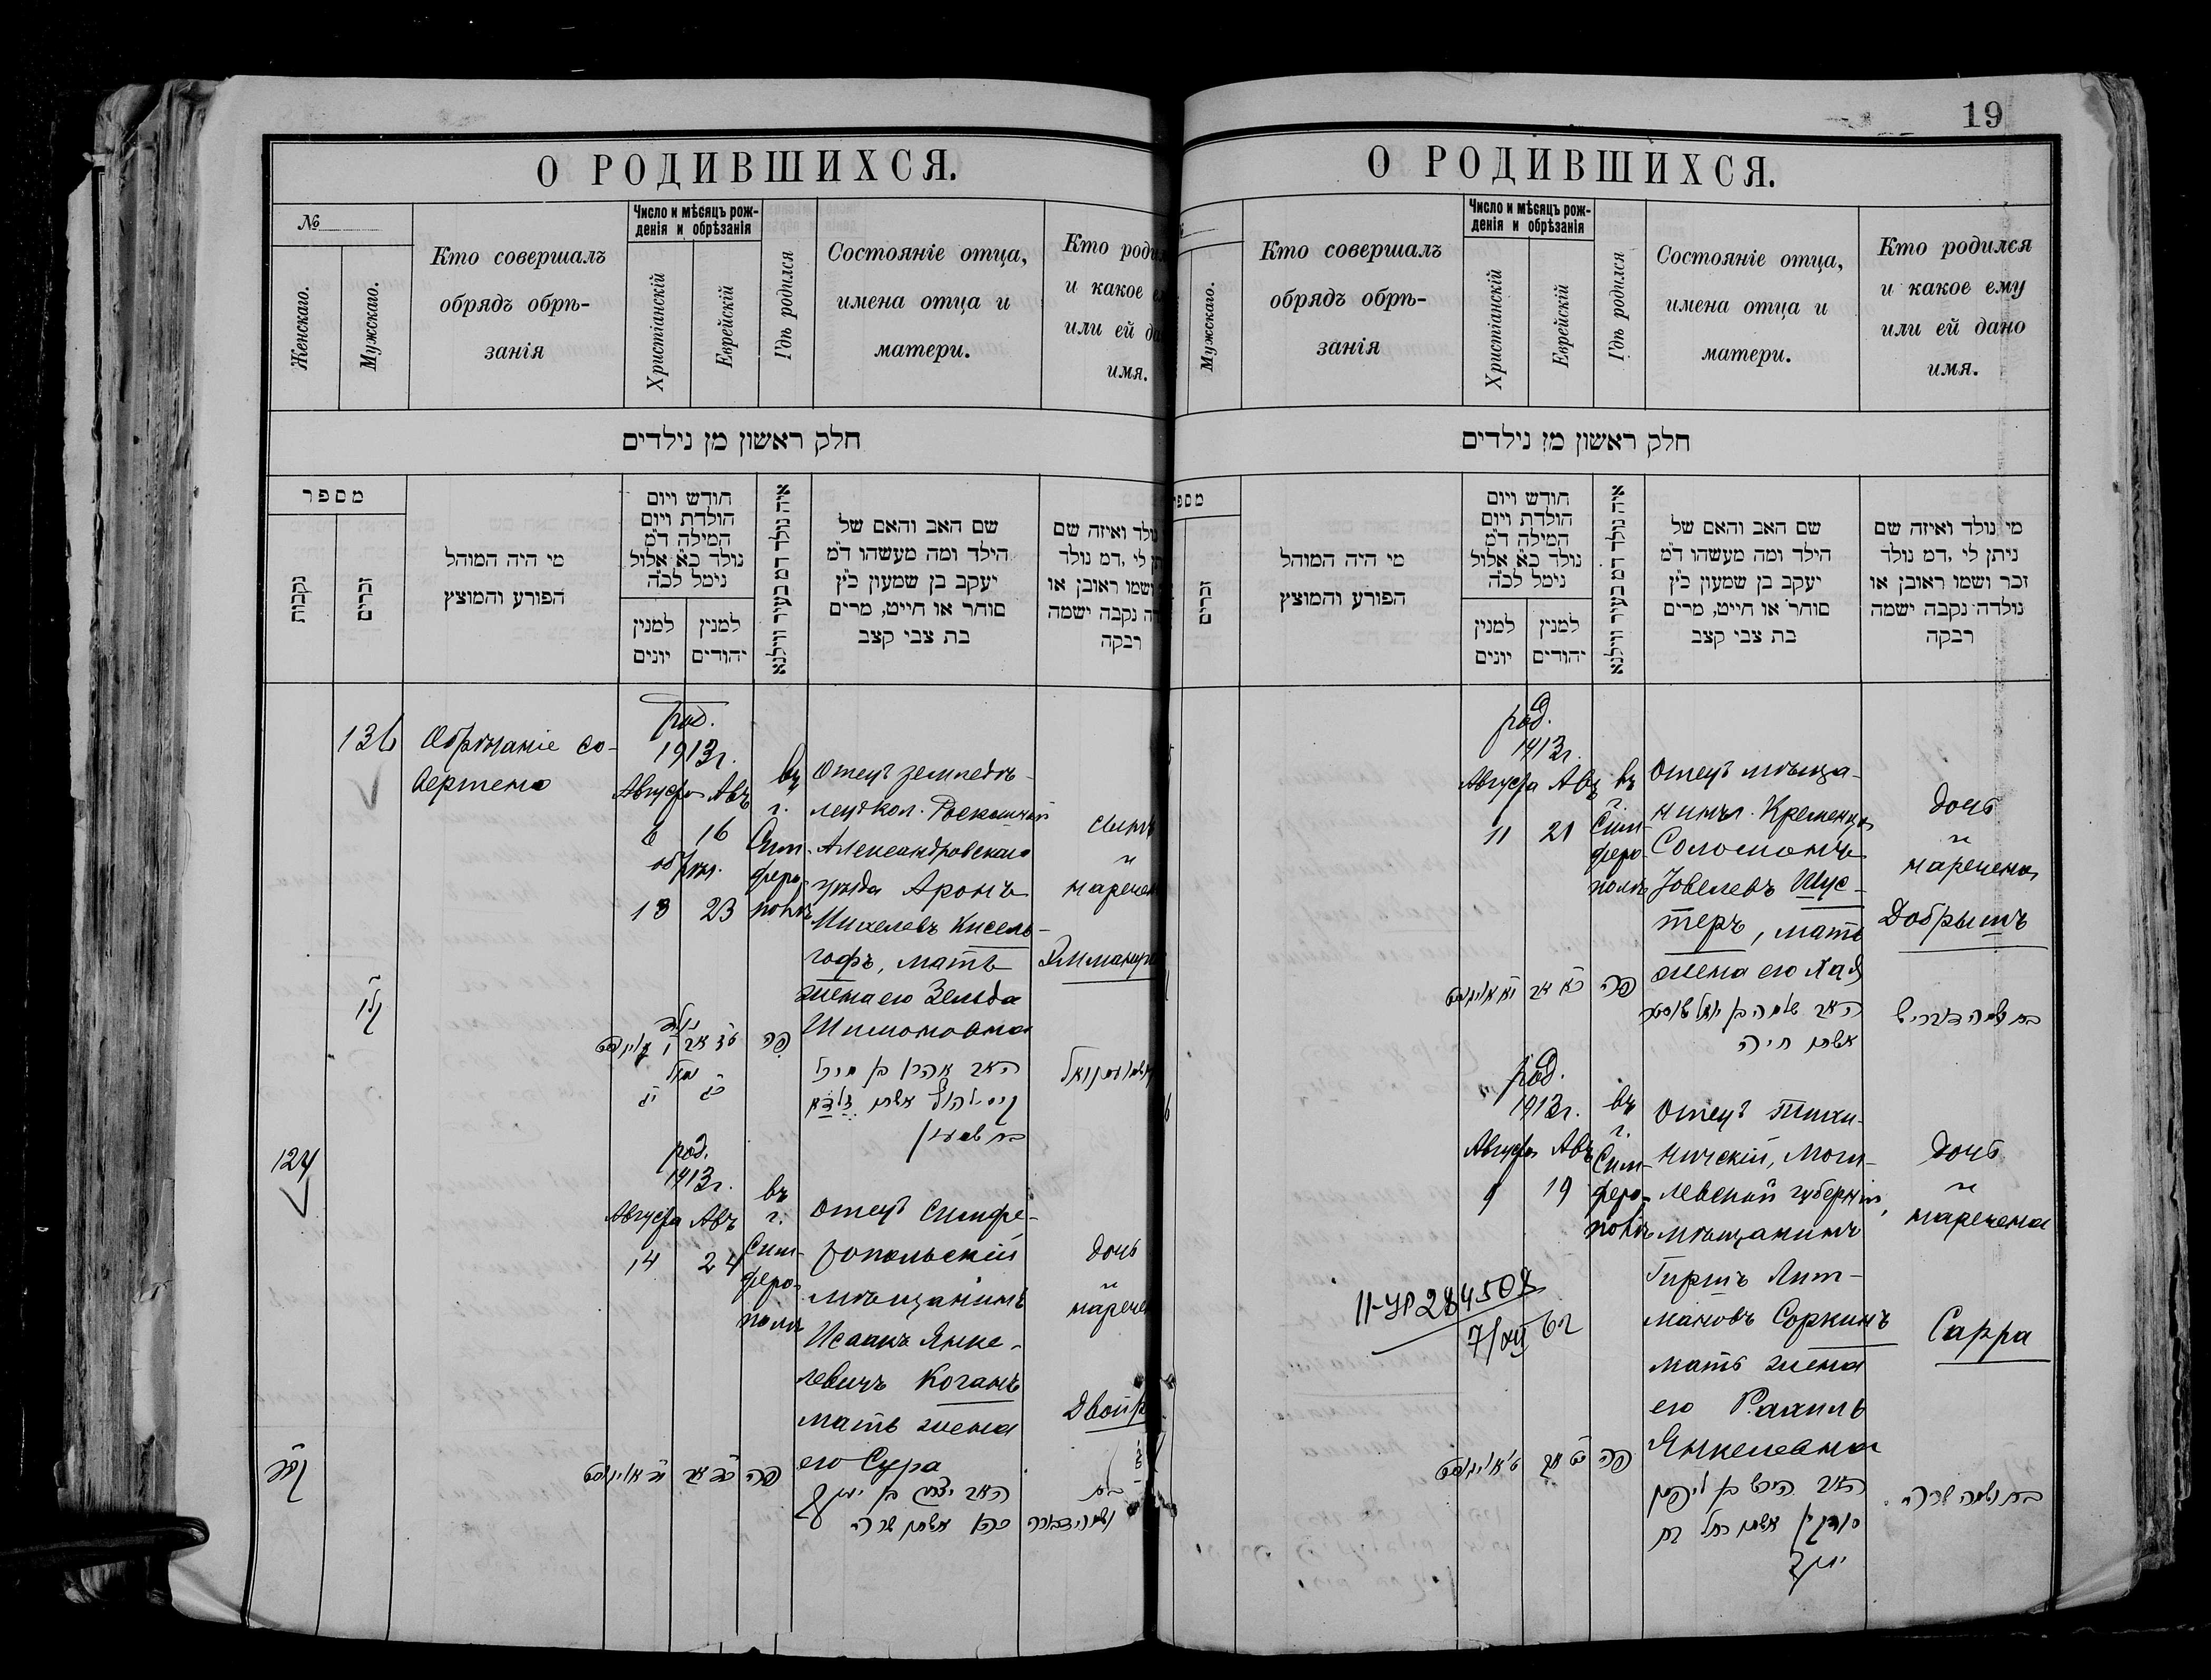 О РОДИВШИХСЯ.
№
Женскаго.
Мужскаго.
Кто совершалъ
обрядъ обрѣ-
занія
Число и мѣсяцъ рож-
денія и обрѣзанія
Христіанскій
Еврейскій
Гдѣ родился
Состояніе отца,
имена отца и
матери.
Кто роди
и какое е
или ей да
имя.
חלק ראשון מן נילדים
מספר
נקבות
זכרים
מי היה המוהל
הפורע והמוצץ
חודש ויום
הולדת ויום
המילה ד״מ
נולד כ״א אלול
נימל לכ״ה
למנין
יונים
למנין
יהודים
איה נולד דמ בעיר ווילנא
שם האב והאם של
הילד ומה מעשהו ד״מ
יעקב בן שמעון כ״ץ
סוחר או חייט, מרים
בת צבי קצב
נולד ואיזה שם
תן לי ,דמ נולד
ושמו ראובן או
דה נקבה ישמה
רבקה
136
Обрѣзаніе со-
вершено
род.
1913 г.
Августа Авъ
6 16
обрѣз.
13 23
въ
г.
Сим-
феро-
полѣ
Отецъ земледѣ-
лецъ кол. Роскошной
Александровскаго
уѣзда Аронъ
Михелевъ Кисель-
гофъ, мать
жена его Зельда
Шимоновна
сынъ
и
нареченъ
Эммануи
קלו
נולד
ט״ז אב ו אויגוסט
נמול
כ״ג י״ג
פה
האב אהרן בן מיכל
קיסילהוף אשתו זלדא
בת שמעון
124
род.
1913 г.
Августа Авъ
14 24
въ
г.
Сим-
феро-
полѣ
Отецъ Симфе-
ропольскій
мѣщанинъ
Исаакъ Янке-
левичъ Коганъ
мать жена
его Сура
дочь
и
наречен
Двойр
פה
האב יצחק בן יעקב
כהן אשתו שרה
בת
ושמה דבורה
19
О РОДИВШИХСЯ.
Мужскаго.
Кто совершалъ
обрядъ обрѣ-
занія
Число и мѣсяцъ рож-
денія и обрѣзанія
Христіанскій
Еврейскій
Гдѣ родился
Состояніе отца,
имена отца и
матери.
Кто родился
и какое ему
или ей дано
имя.
חלק ראשון מן נילדים
מספ
זכרים
מי היה המוהל
הפורע והמוצץ
חודש ויום
הולדת ויום
המילה ד״מ
נולד כ״א אלול
נימל לכ״ה
למנין
יונים
למנין
יהודים
איה נולד דמ בעיר ווילנא
שם האב והאם של
הילד ומה מעשהו ד״מ
יעקב בן שמעון כ״ץ
סוחר או חייט, מרים
בת צבי קצב
מי נולד ואיזה שם
ניתן לי ,דמ נולד
זכר ושמו ראובן או
נולדה נקבה ישמה
רבקה
род.
1913 г.
Августа Авъ
11 21
въ
г.
Сим-
феро-
полѣ
Отецъ мѣща-
нинъ г. Кременца
Соломонъ
Іовелевъ Шус-
теръ, мать
жена его Хая
дочь
и
наречена
Добрышъ
י״א אויגוסט כ״א אב פה
האב שלמה בן יואל שוסטער
אשתו חיה
בת ושמה דובריש
род.
1913 г.
Августа Авъ
9 19
въ
г.
Сим-
феро-
полѣ
Отецъ Тихи-
ничскій, Моги-
левской губерніи,
мѣщанинъ
Гиршъ Лип-
мановъ Соркинъ
мать жена
его Рахиль
Янкелевна
дочь
и
наречена
Сарра
II-УР 284508
7/XII 62
ט׳ אויגוסט י״ט אב פה
האב הירש בן ליפמן
סורקין אשתו רחל בת
יעקב
בת ושמה שרה